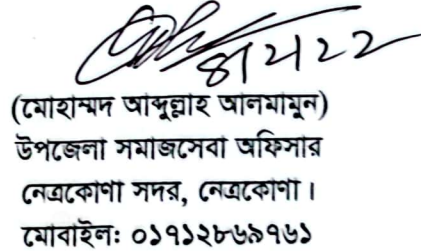 (মোহাম্মদ আব্দুল্লাহ আলমামুন)
উপজেলা সমাজসেবা অফিসার
নেত্রকোণা সদর, নেত্রকোণা।
মোবাইলঃ ০১৭১২৮৬৯৭৬১